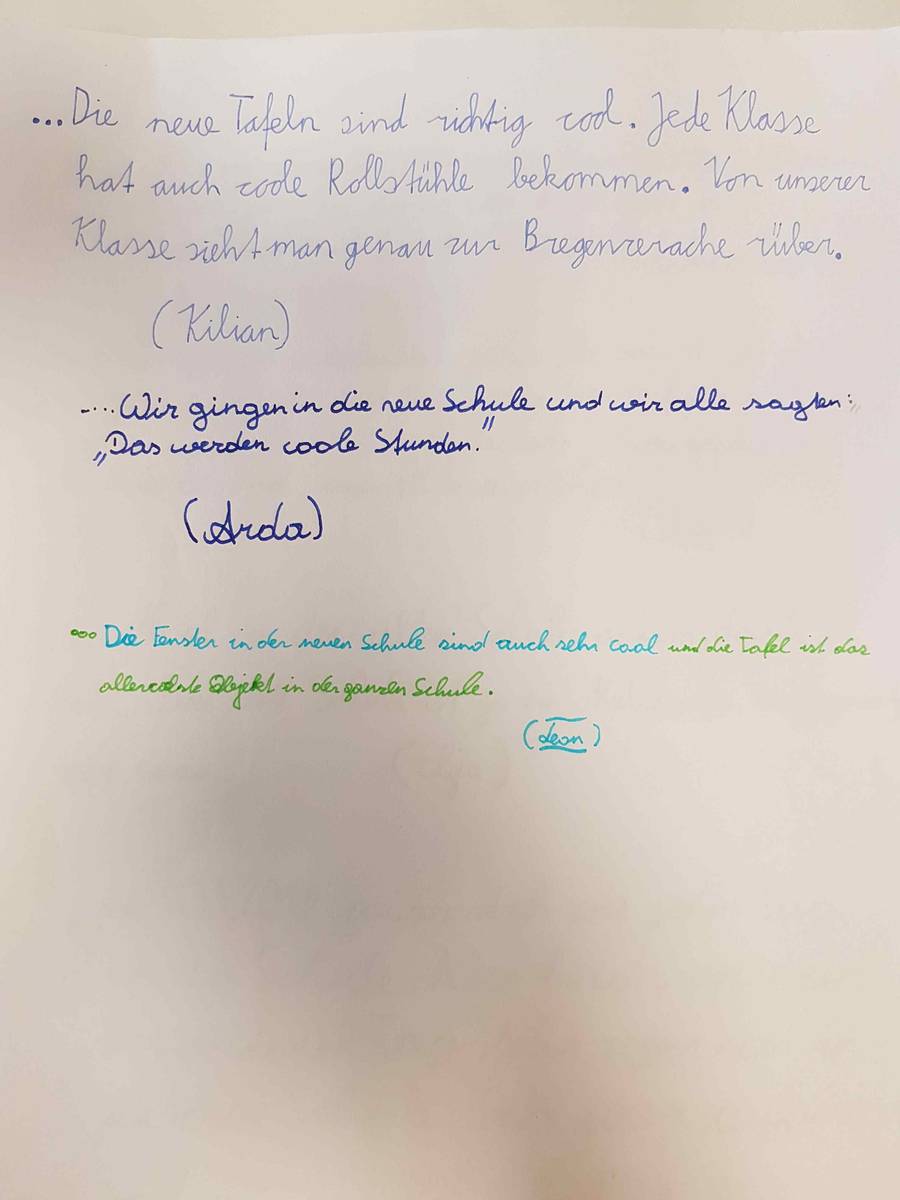 ...Die neue Tafeln sind richtig cool. Jede Klasse
hat auch coole Rollstühle bekommen. Von unserer
Klasse sieht man genau zur Bregenzerache rüber.
(Kilian)
-... Wir gingen in die neue Schule und wir alle sagten:
„Das werden coole Stunden."
(Arda)
... Die Fenster in der neuen Schule sind auch sehr cool und die Tafel ist das
allercoolste Objekt in der ganzen Schule.
(Leon)